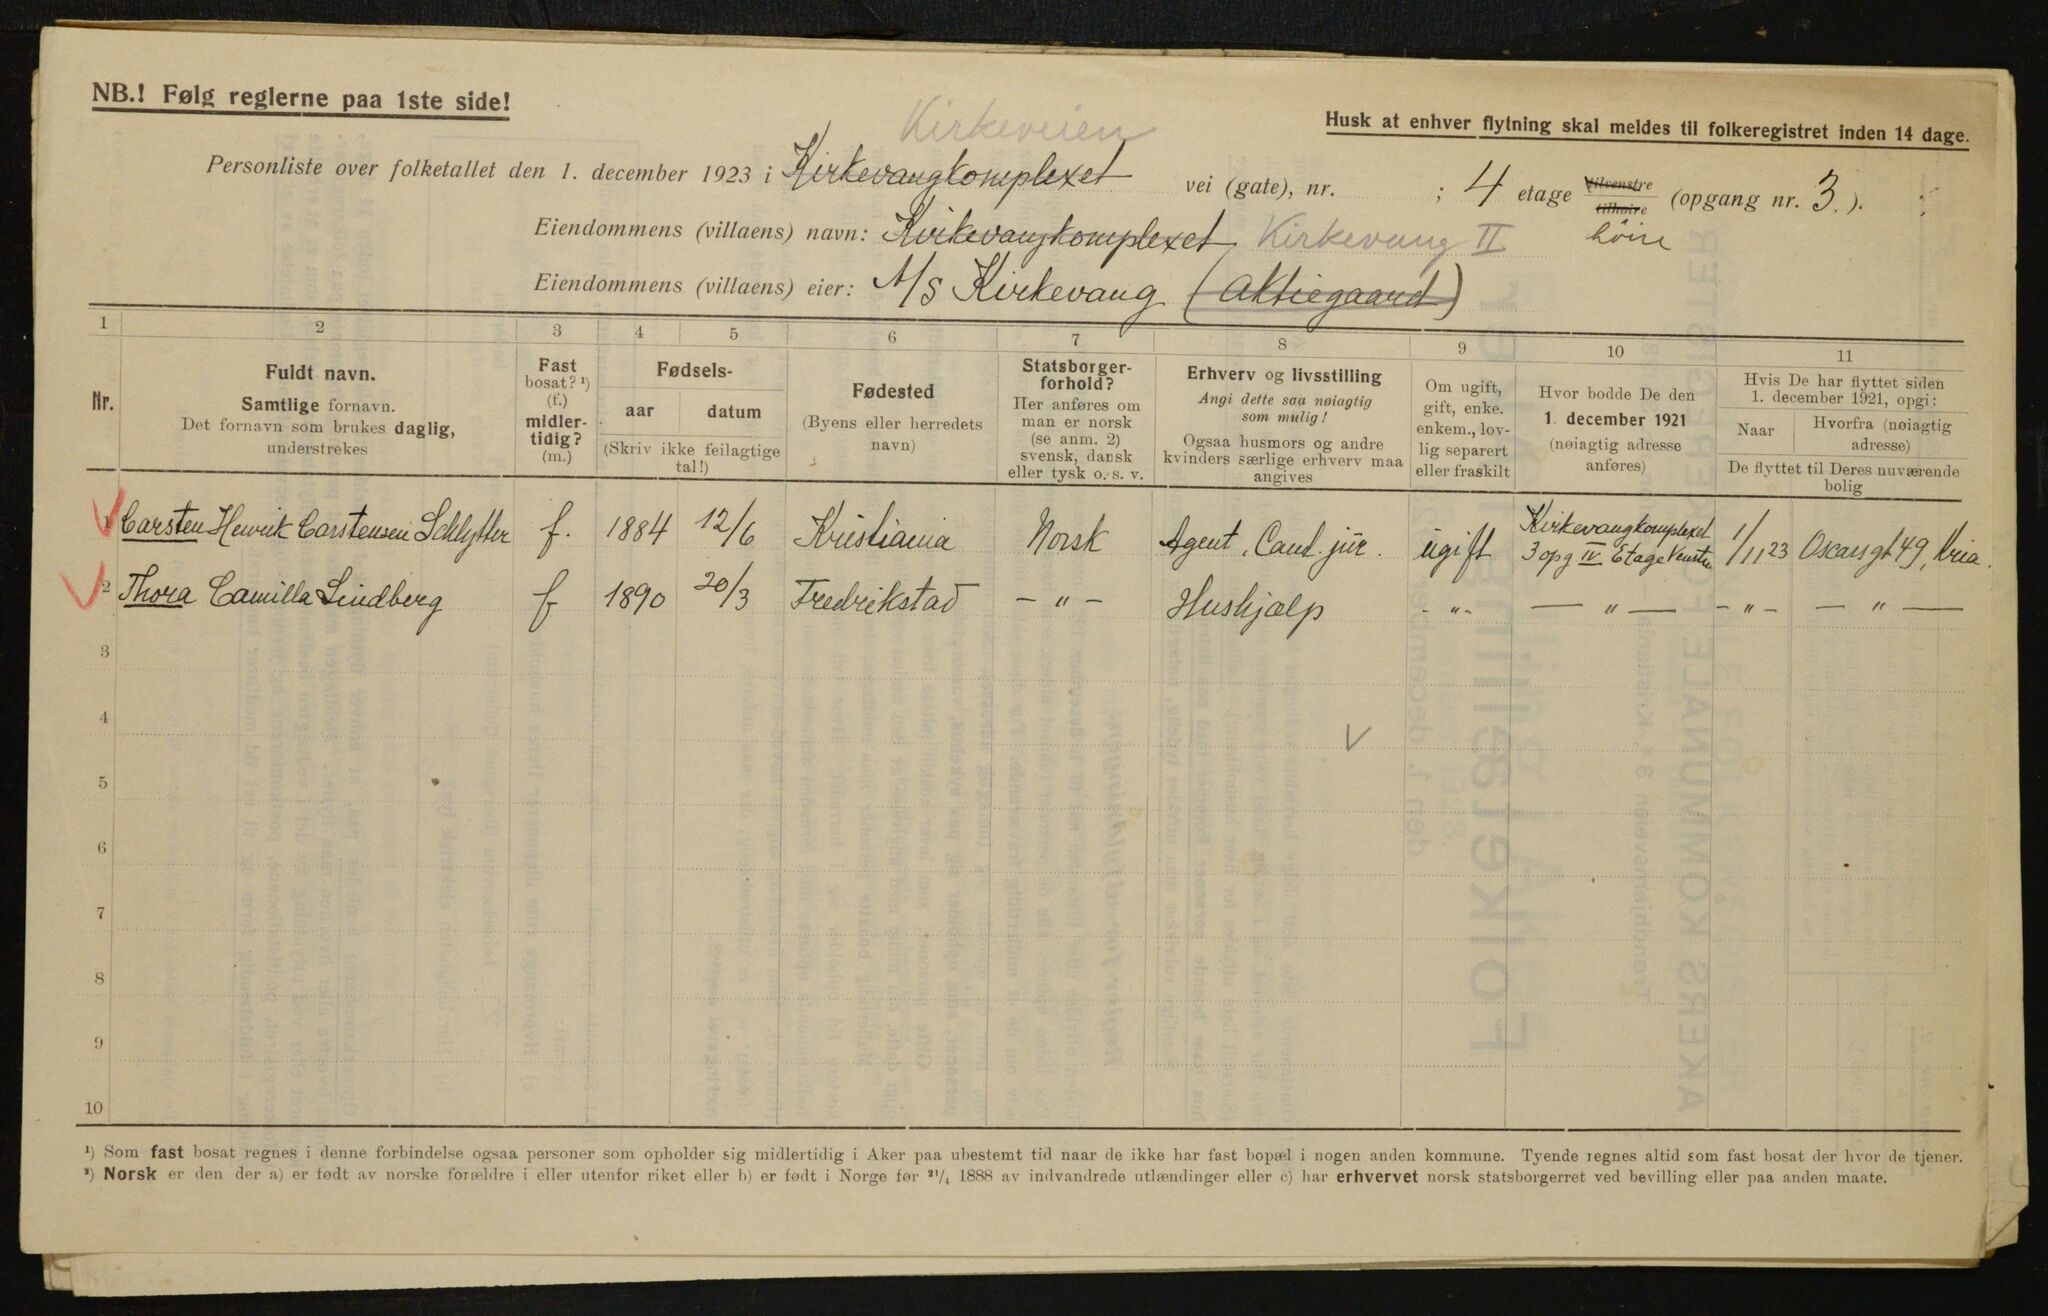 NB.! Følg reglerne paa 1ste side!
Husk at enhver flytning skal meldes til folkeregistret inden 14 dage.
Kirkeveien
Personliste over folketallet den 1. december 1923 i Kirkevangkomplexet vei (gate), nr. ; 4 etage tilvenstre tilhøire (opgang nr. 3.).
høire
Eiendommens (villaens) navn: Kirkevangkomplexet Kirkevang II
Eiendommens (villaens) eier: A/S Kirkevang (Aktiegaard)
1 2 3 4 5 6 7 8 9 10 11
Nr.
Fuldt navn.
Samtlige fornavn.
Det fornavn som brukes daglig,
understrekes
Fast
bosat? ¹)
(f.)
midler-
tidig?
(m.)
Fødsels-
aar datum
(Skriv ikke feilagtige
tal!)
Fødested
(Byens eller herredets
navn)
Statsborger-
forhold?
Her anføres om
man er norsk
(se anm. 2)
svensk, dansk
eller tysk o. s. v.
Erhverv og livsstilling
Angi dette saa nøiagtig
som mulig!
Ogsaa husmors og andre
kvinders særlige erhverv maa
angives
Om ugift,
gift, enke.
enkem., lov-
lig separert
eller fraskilt
Hvor bodde De den
1. december 1921
(nøiagtig adresse
anføres)
Hvis De har flyttet siden
1. december 1921, opgi:
Naar
Hvorfra (nøiagtig
adresse)
De flyttet til Deres nuværende
bolig
1 Carsten Henrik Carstensen Schlytter f. 1884 12/6 Kristiania Norsk Agent, Cand. jur. ugift Kirkevangkomplexet
3 opg IV Etage Venstre 1/11 23 Oscarsgt 49, Kria.
2 Thora Camilla Lindberg f 1890 20/3 Fredrikstad – " – Hushjælp - " - — " — – " – — " —
3
4
5
6
7
8
9
10
¹) Som fast bosat regnes i denne forbindelse ogsaa personer som opholder sig midlertidig i Aker paa ubestemt tid naar de ikke har fast bopæl i nogen anden kommune. Tyende regnes altid som fast bosat der hvor de tjener.
²) Norsk er den der a) er født av norske forældre i eller utenfor riket eller b) er født i Norge før 21/4 1888 av indvandrede utlændinger eller c) har erhvervet norsk statsborgerret ved bevilling eller paa anden maate.